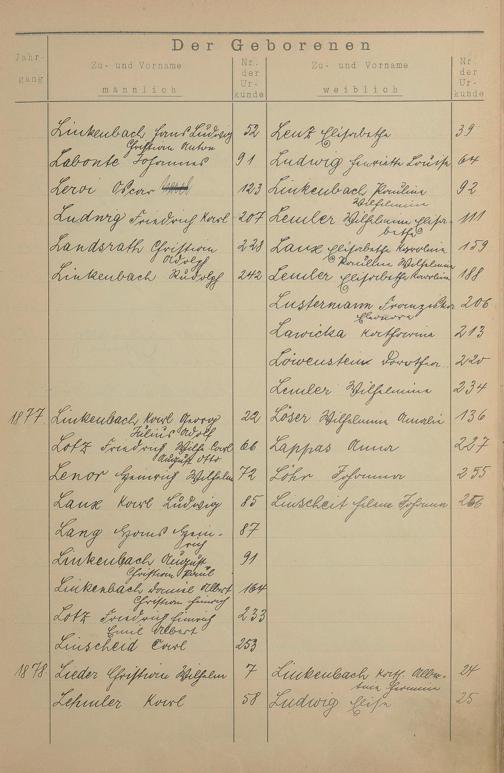 Der Geborenen
Jahr-
gang
Zu- und Vorname
männlich
Nr.
der
Ur-
kunde
Zu- und Vorname
weiblich
Nr.
der
Ur-
kunde
Linkenbach Hans Ludwig 52 Lenz Elisabetha 39
Christian Anton
Labonte Johannes 91 Ludwig Henriette Louise 64
Leroi Oscar 123 Linkenbach Pauline 92
Wilhelmine
Ludwig Friedrich Karl 207 Lemler Wilhelmine Elisa- 111
betha
Landsrath Christian 228 Laux Elisabetha Karolina 159
Adolf Pauline Wilhelmine
Linkenbach Rudolf 242 Lemler Elisabetha Karolina 188
Lustermann Franziska 206
Eleonore
Lawicka Katharina 213
Löwenstein Dorothea 220
Lemler Wilhelmine 234
1877 Linkenbach Karl Georg 22 Löser Wilhelmine Amalie 136
Julius Adolf
Lotz Friedrich Wilh. Carl 66 Lappas Anna 227
August Otto
Lenor Heinrich Wilhelm 72 Löhr Johanna 255
Laux Karl Ludwig 85 Linscheit Helene Johann 256
Lang Hans Hein- 87
rich
Linkenbach August 91
Christian Paul
Linkenbach Daniel Albert 164
Christian Heinrich
Lotz Friedrich Heinrich 233
Emil Albert
Linscheid Carl 253
1878 Lieder Christian Wilhelm 7 Linkenbach Kath. 24
Anna Hermine
Lehmler Karl 58 Ludwig Elise 25